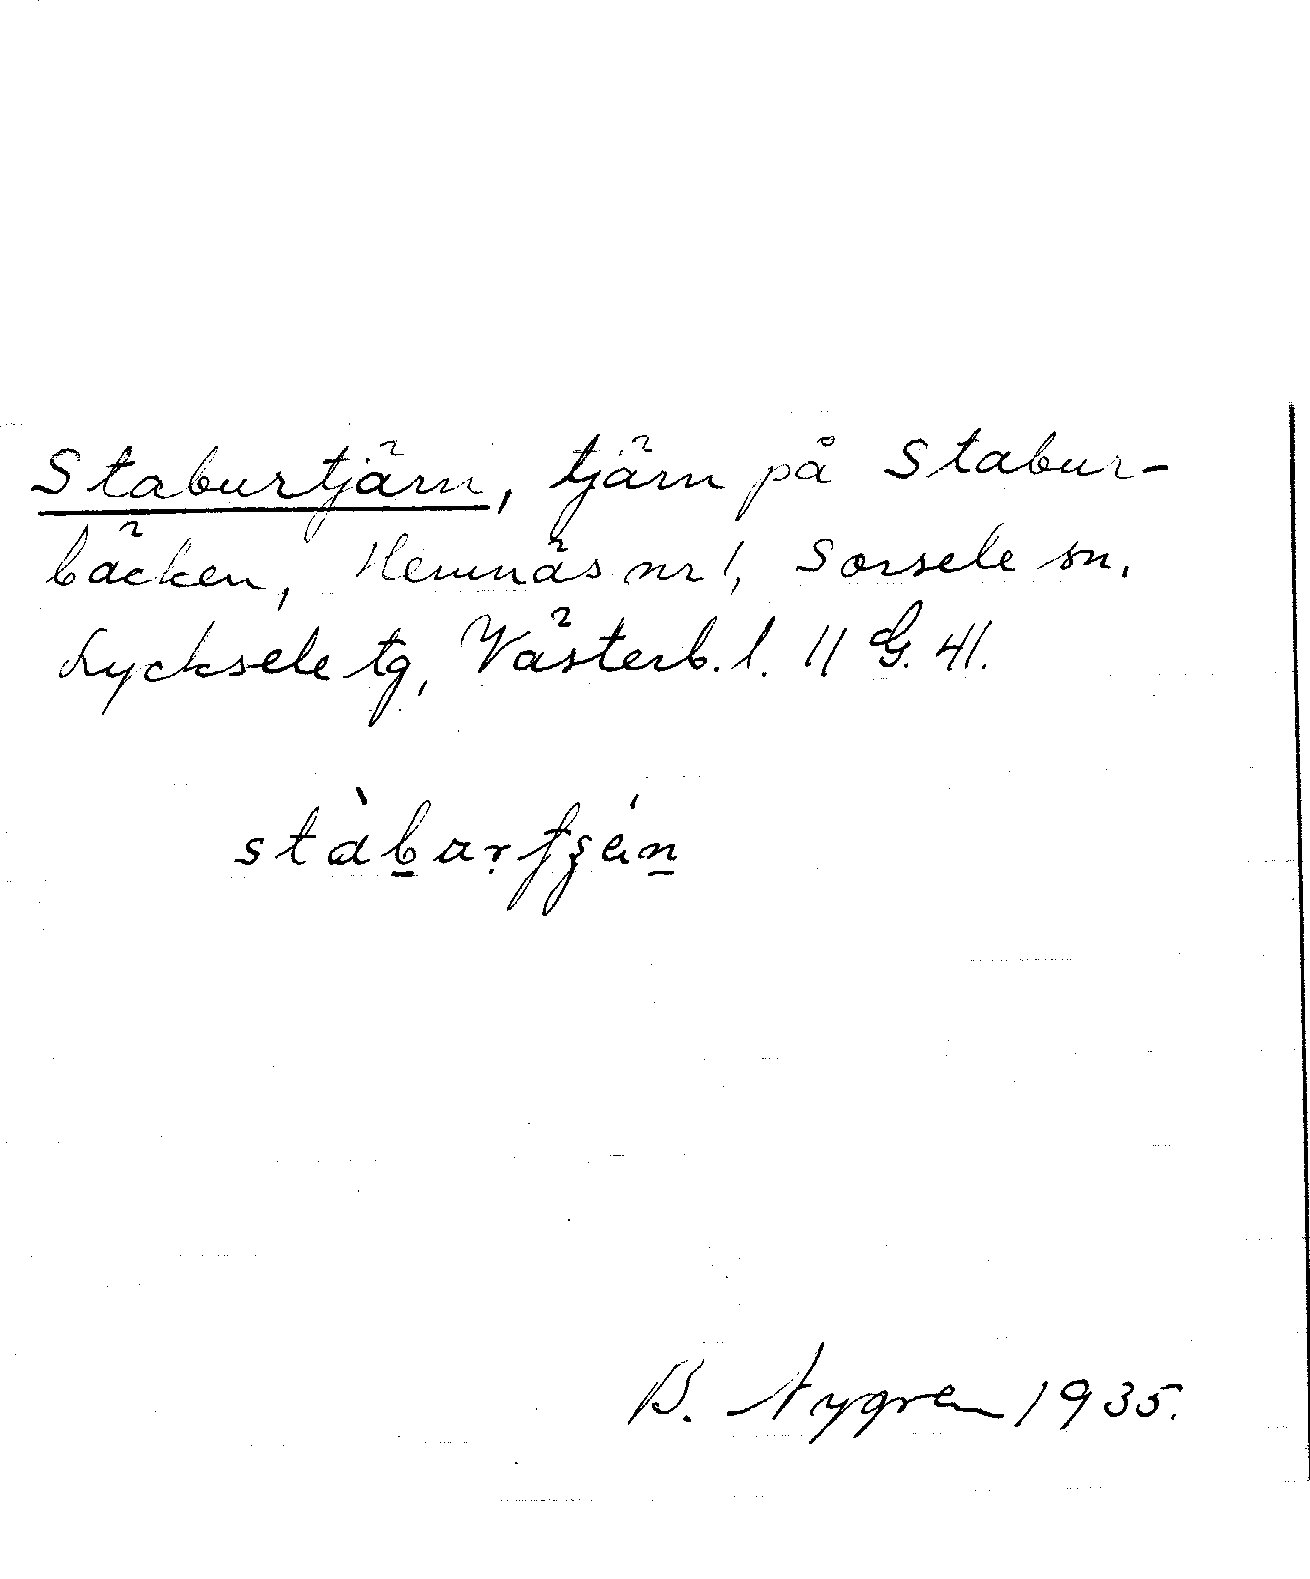 Staburtjärn, tjärn på Stabur-
bäcken, Hemnäs nr 1, Sorsele sn.
Lycksele tg, Västerb. l. 11 G. 41.
B. Nygren 1935.